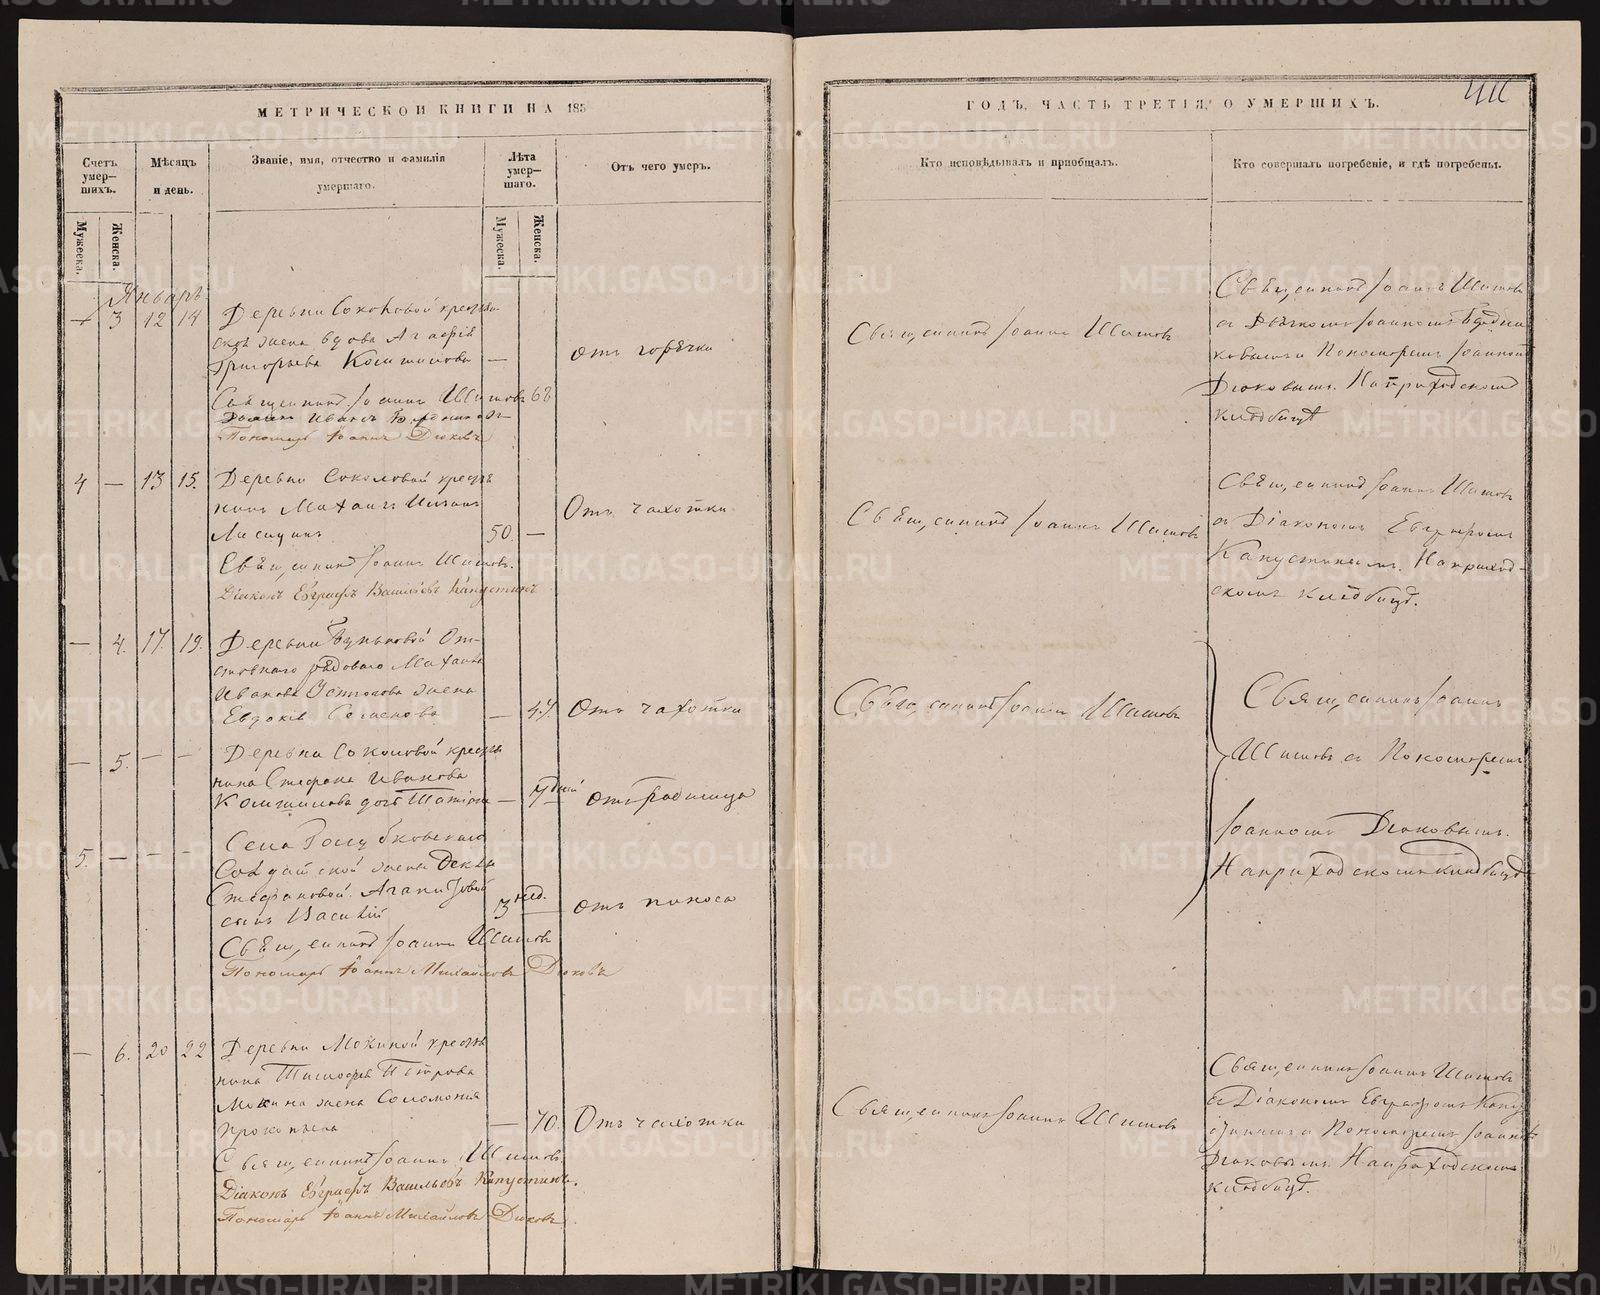 МЕТРИЧЕСКОЙ КНИГИ НА 185
Счетъ умер-шихъ.
Мѣсяцъ и день.
Званіе, имя, отчество и фамилія умершаго.
Лѣта умер-шаго.
Отъ чего умеръ.
Мужеска.
Женска.
Мужеска.
Женска.
Январь
— 3 12 14
Деревни Соколовой крестьян
ской жена вдова Агафія
Григорьева —
68
отъ горячки
Священникъ Іоаннъ Шишовъ
Пономарь Іоаннъ Дюковъ
4 — 13 15.
Деревни Соколовой кресть
янинъ
Лисицинъ
50. —
Отъ чахотки
Священникъ Іоаннъ Шишовъ.
Діаконъ Евграфъ Васильевъ Капустинъ
— 4. 17. 19.
Деревни От-
ставнаго рядоваго Михаила
Иванова жена
Евдокія —
47.
Отъ чахотки
— 5. — —
Деревни Соколовой кресть
янина Стефана Иванова
дочь Татіана —
7 дней
отъ родимца
5. — — —
Села
Солдатской жены
Стефановой
сынъ Василій
3 нед. —
отъ поноса
Священникъ Іоаннъ Шишовъ
Пономарь Іоаннъ Михайловъ Дюковъ
— 6. 20 22
Деревни Мокиной кресть
янина Тимофея Петрова
Мокина жена Соломонія
Прокопьева —
70.
Отъ чахотки
Священникъ Іоаннъ Шишовъ.
Діаконъ Евграфъ Васильевъ Капустинъ.
Пономарь Іоаннъ Михайловъ Дюковъ.
ГОДЪ, ЧАСТЬ ТРЕТІЯ, О УМЕРШИХЪ.
Кто исповѣдывалъ и пріобщалъ.
Кто совершалъ погребеніе, и гдѣ погребены.
Священникъ Іоаннъ Шишовъ
Священникъ Іоаннъ Шишовъ
съ Дьячкомъ Іоанномъ Бѣдни
ковымъ и Пономаремъ Іоанномъ
Дюковымъ. На приходскомъ
кладбищѣ
Священникъ Іоаннъ Шишовъ
Священникъ Іоаннъ Шишовъ
съ Діакономъ Евграфомъ
Капустинымъ. На приход-
скомъ кладбищѣ.
Священникъ Іоаннъ Шишовъ
Священникъ Іоаннъ
Шишовъ съ Пономаремъ
Іоанномъ Дюковымъ.
На приходскомъ кладбищѣ
Священникъ Іоаннъ Шишовъ
Священникъ Іоаннъ Шишовъ
съ Діакономъ Евграфомъ Капу
стинымъ и Пономаремъ Іоанномъ
Дюковымъ. На приходскомъ
кладбищѣ.
METRIKI.GASO-URAL.RU